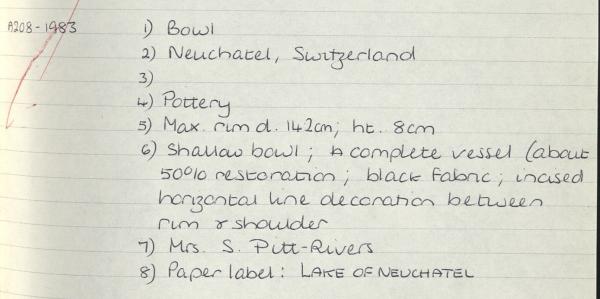 A208-1983 1) Bowl
2) Neuchatel, Switzerland
3)
4) Pottery
5) Max. rim d. 142cm; ht. 8cm
6) Shallow bowl; A complete vessel (about
50% restoration; black fabric; incised
horizontal line decoration between
rim & shoulder
7) Mrs. S. Pitt-Rivers
8) Paper label: LAKE OF NEUCHATEL